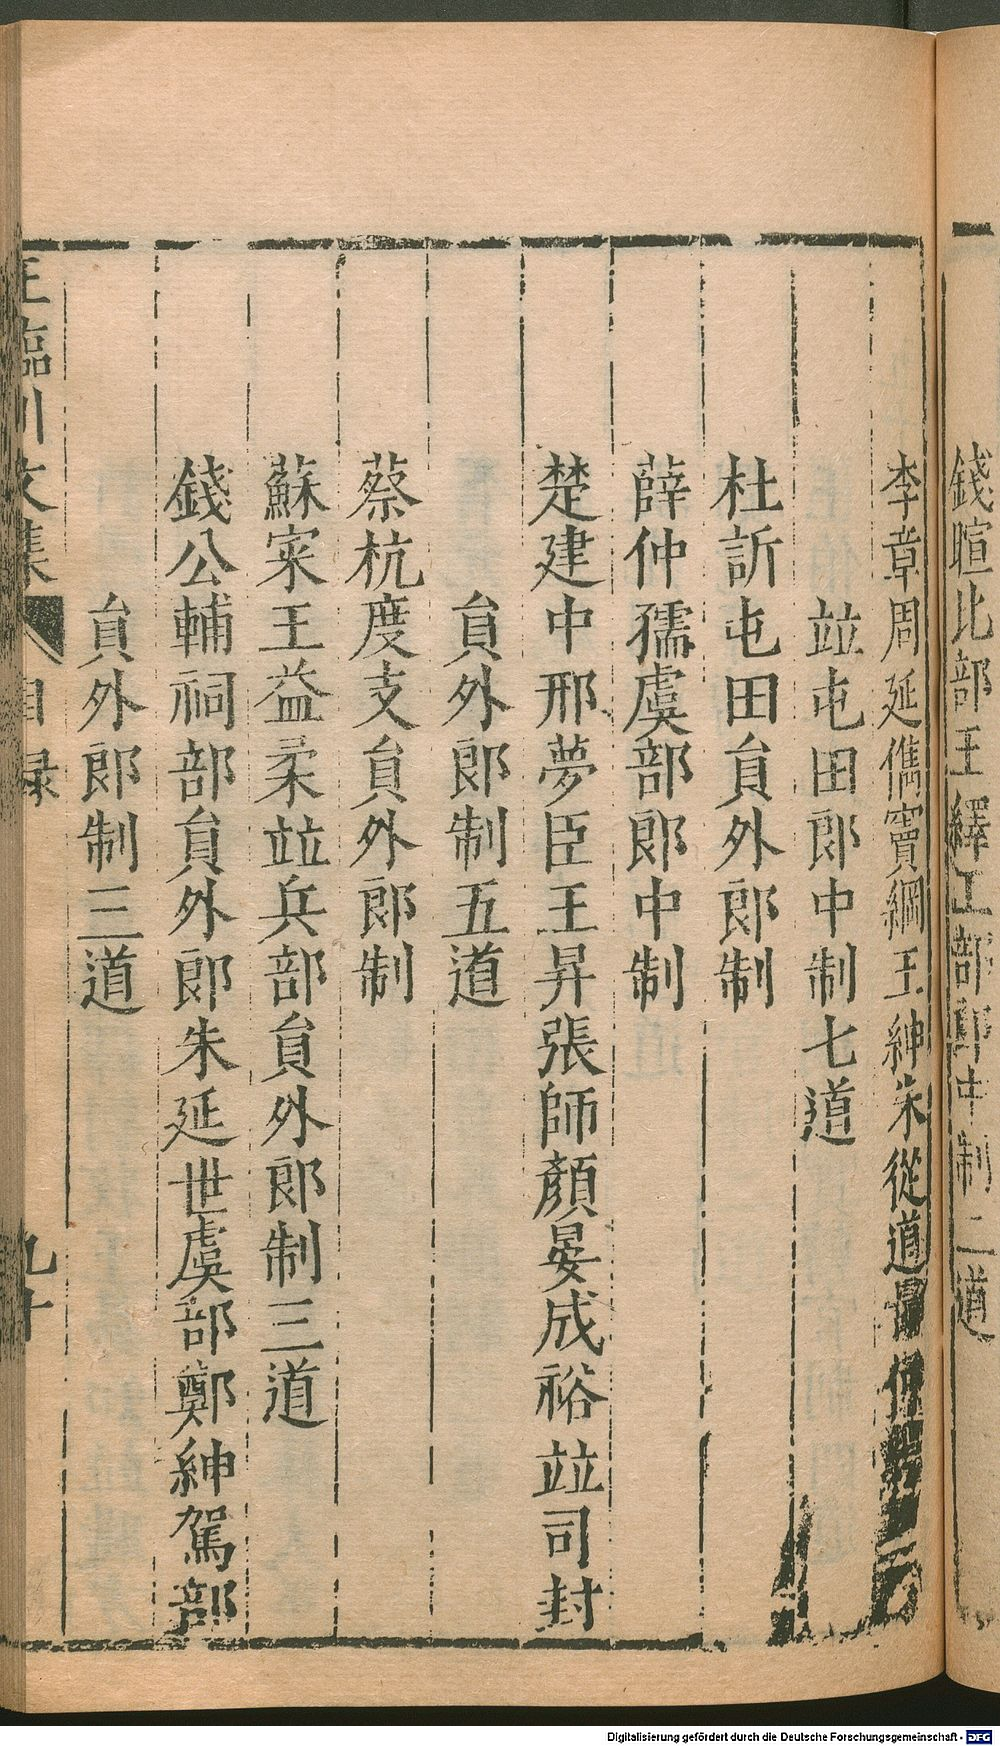 錢暄比部王繹工部郎中制二道
李章周延儁竇綱王紳朱從道
竝屯田郎中制七道
杜訢屯田貟外郎制
薛仲孺虞部郎中制
楚建中邢夢臣王昇張師顏晏成裕竝司封
貟外郎制五道
蔡杭度支貟外郎制
蘇寀王益柔竝兵部貟外郎制三道
錢公輔祠部貟外郎朱延世虞部鄭紳駕部
貟外郎制三道
王臨川文集 目録 九十
Digitalisierung gefördert durch die Deutsche Forschungsgemeinschaft - DFG